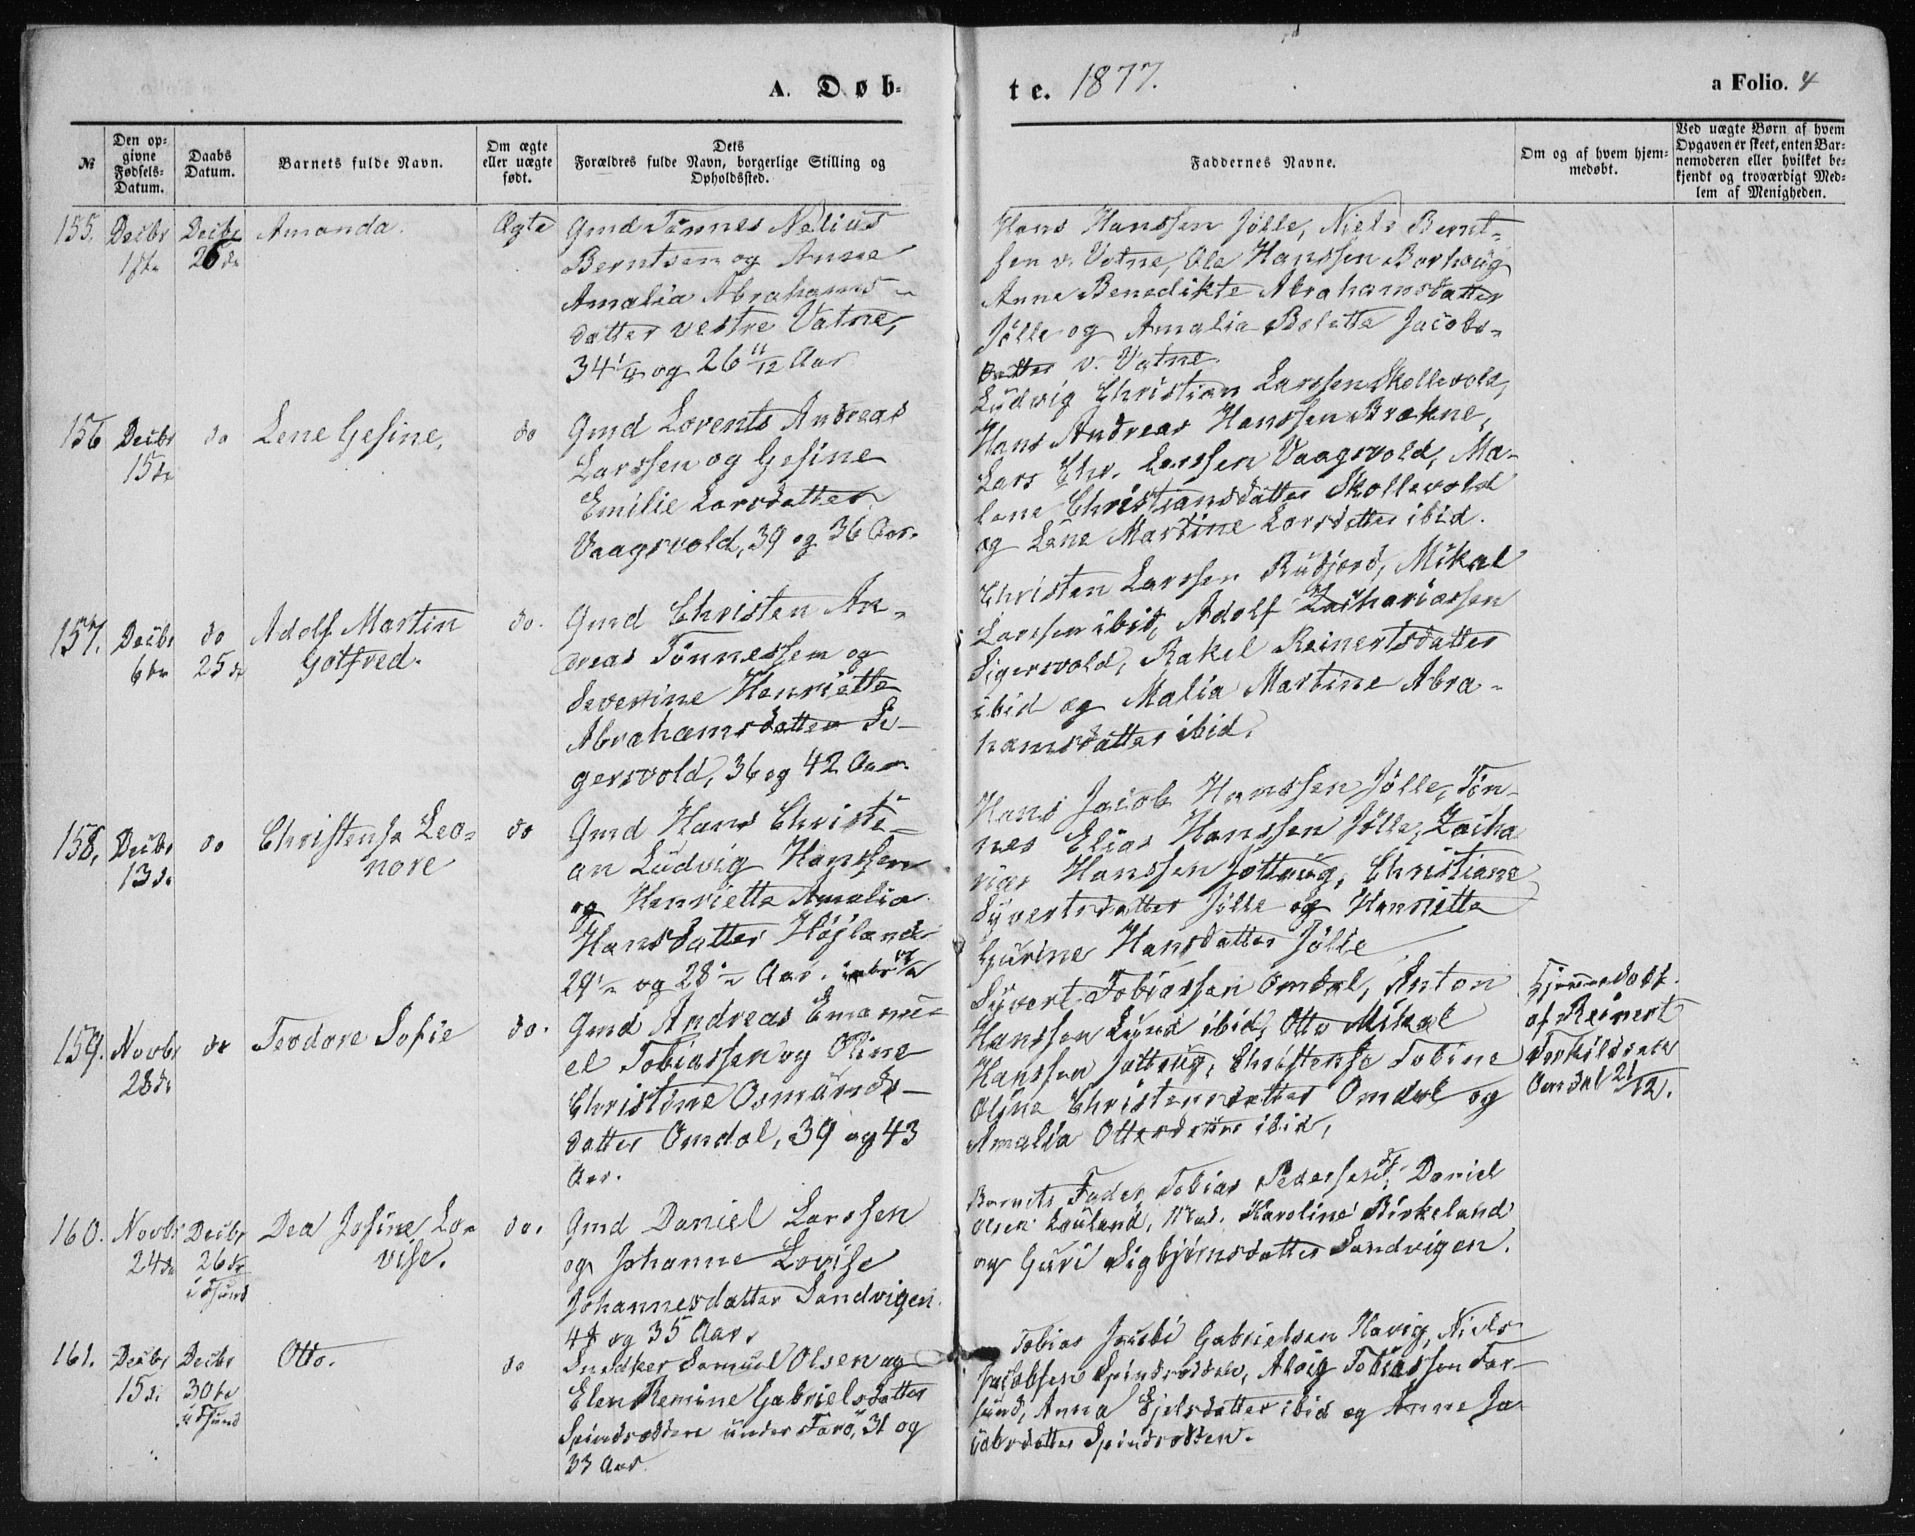 A. Døb-
te. 1877.
a Folio. 4
№
Den op-
givne
Fødsels-
Datum.
Daabs
Datum.
Barnets fulde Navn.
Om ægte
eller uægte
født.
Dets
Forældres fulde Navn, borgerlige Stilling og
Opholdssted.
Faddernes Navne.
Om og af hvem hjem-
medøbt.
Ved uægte Børn af hvem
Opgaven er skeet, enten Bar-
nemoderen eller hvilket be-
kjendt og troværdigt Med-
lem af Menigheden.
155. Decbr Decbr Amanda. Ægte Gmd Tønnes Nelius
1ste 26de Berntsen og Anne
Amalia Abrahams-
datter vestre Vatne,
34 1/4 og 26 11/12 Aar
Hans Hanssen Jølle, Niels Bernt-
sen v. Vatne, Ole Hanssen Borhaug
Anne Benedikte Abrahamsdatter
Jølle og Amalia Boletta Jacobs-
datter v. Vatne.
156 Decbr do Lene Gesine, do Gmd Lorents Andreas
15de Larssen og Gesine
Emilie Larsdatter
Vaagsvold, 39 og 36 Aar.
Ludvig Christian Larssen Skollevold,
Hans Andreas Hanssen Brækne,
Lars Chr. Larssen Vaagsvold, Ma-
lene Christiansdatter Skollevold
og Lene Martine Larsdatter ibid.
157. Decbr do Adolf Martin do. Gmd Christen An-
6te 25de Gotfred. dreas Tønnessen og
Severine Henriette
Abrahamsdatter Si-
gersvold, 36 og 42 Aar.
Christen Larssen Rudjord, Mikal
Larssen ibid, Adolf Zachariassen
Sigersvold, Rakel Reinertsdatter
ibid og Malia Martine Abra-
hamsdatter ibid.
158, Decbr do Christense Leo- do Gmd Hans Christi-
13de nore an Ludvig Hanssen
og Henriette Amalia
Hansdatter Højland
29 1/2 og 28 1/2 Aar.
Hans Jacob Hanssen Jølle, Tøn-
nes Elias Hanssen Jølle, Zacha
rias Hanssen Jøttrug, Christiane
Syvertsdatter Jølle og Henriette
Gurine Hansdatter Jølle
159. Novbr do Teodore Sofie do. Gmd Andreas Emanu-
28de el Tobiassen og Oline
Christine Osmunds-
datter Omdal, 39 og 43
Aar.
Syvert Tobiassen Omdal, Anton
Hanssen Lund ibid, Otto Mikal
Hanssen Jøttrug, Christense Tobine
Oline Christensdatter Omdal og
Amalia Ottersdatter ibid,
Hjemmedøbt
af Reinert
Torkildsen
Omdal 21/12.
160. Novbr Decbr Dea Josine Lo- do. Gmd Daniel Larssen
24de 26de vise. og Johanne Lovise
i Fsund Johannesdatter Sandvigen.
og 35 Aar.
Barnets Fader, Tobias Pedersen, Daniel
Olsen Lauland, Mad. Karoline Birkeland
og Guri Sigbjørnsdatter Sandvigen.
161. Decbr Decbr Otto. do Snedker Samuel Olsen og
15de 30te Elen Remine Gabrielsdatter
i Fsund Spindsodden under Farø, 31 og
33 Aar.
Tobias Jacobi Gabrielsen Havig, Niels
Jacobsen Spindsodden, Alvig Tobiassen Far-
sund, Anna Ejelsdatter ibid og Anne Ja-
cobsdatter Spindsodden.